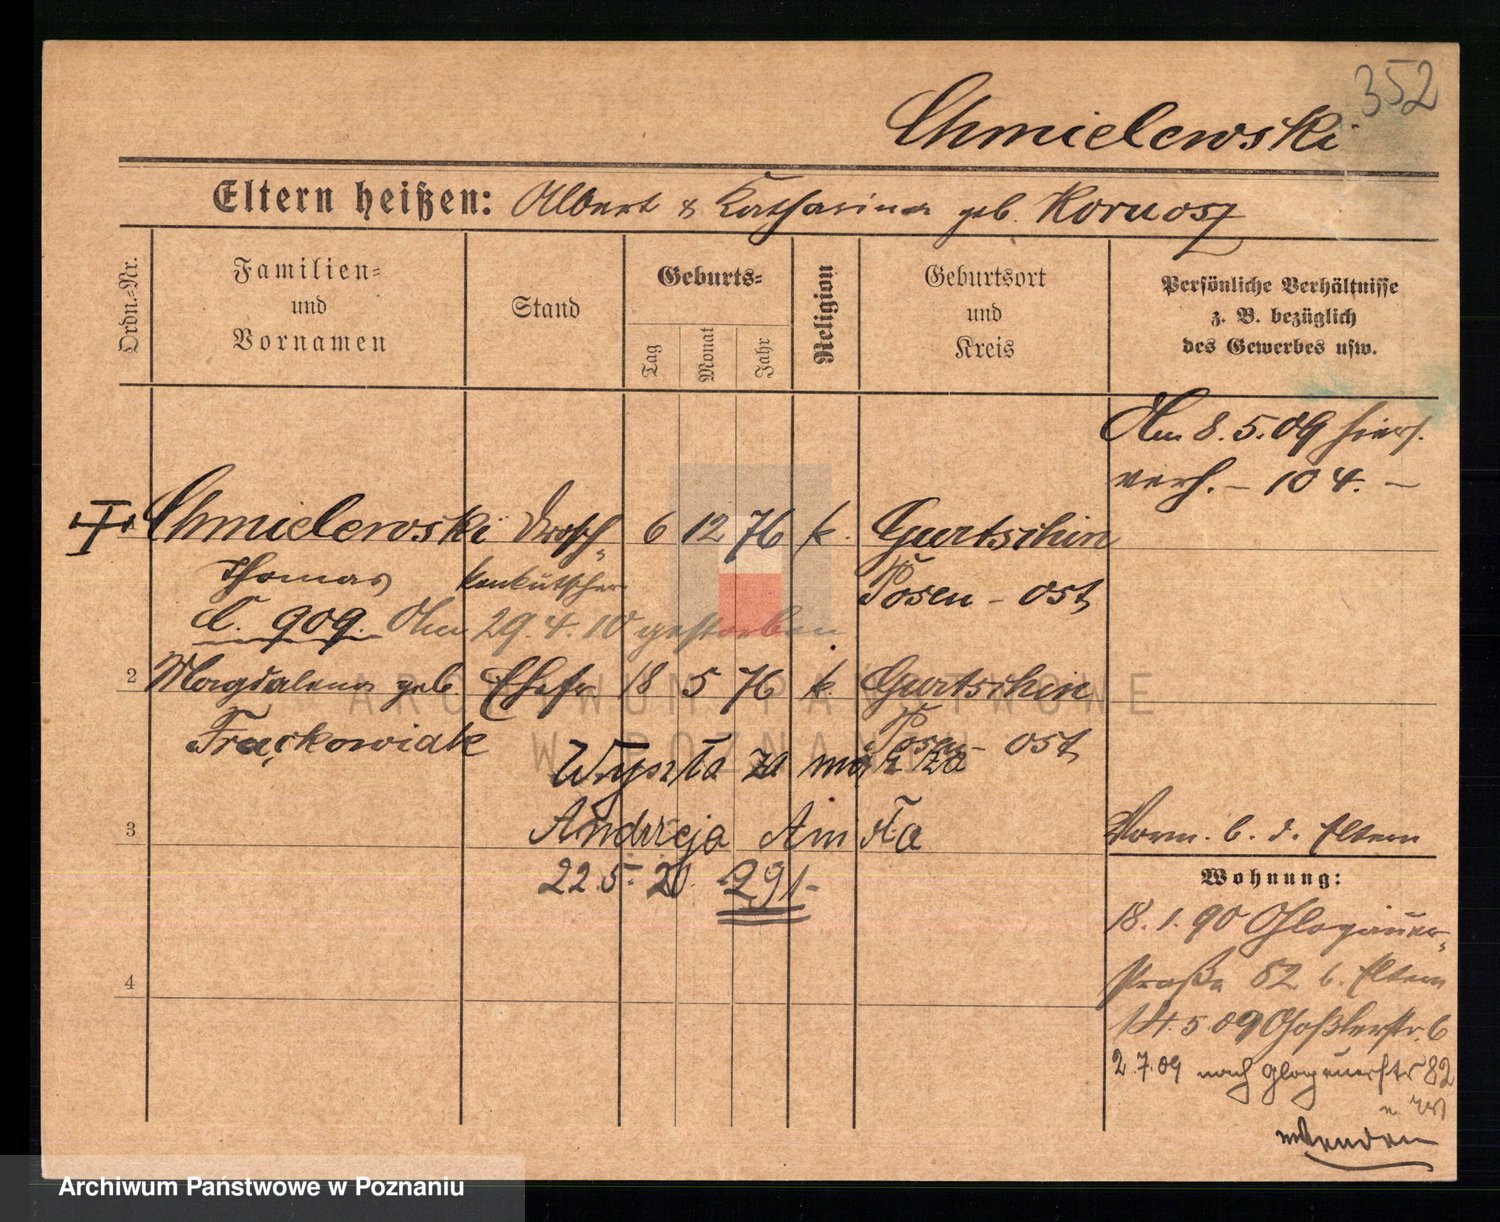 352
Chmielewski
Eltern heißen: Albert & Katharina geb. Kornosz
Ordn.=Nr.
Familien=
und
Vornamen
Stand
Geburts=
Tag
Monat
Jahr
Religion
Geburtsort
und
Kreis
Persönliche Verhältnisse
z. B. bezüglich
des Gewerbes usw.
Am 8.5.09 hier
verh. – 104. –
Chmielewski Drosch= 6 12 76 k. Gurtschin
Thomas kenkutscher Posen – Ost
C. 909. Am 29.4.10 gestorben
2 Magdalena geb Ehefr 18 5 76 k. Gurtschin
Frąckowiak Posen – Ost
Wyszła za mąż za
3 Andrzeja
22.5.20. 291–
Vorm. b. d. Eltern
Wohnung:
18.1.90 Glogauer=
straße 82 b. Eltern
14.5 09 Goßlerstr. 6
2.7.09 nach Glogauerstr 82
wenden
4
ARCHIWUM PAŃSTWOWE
W POZNANIU
Archiwum Państwowe w Poznaniu